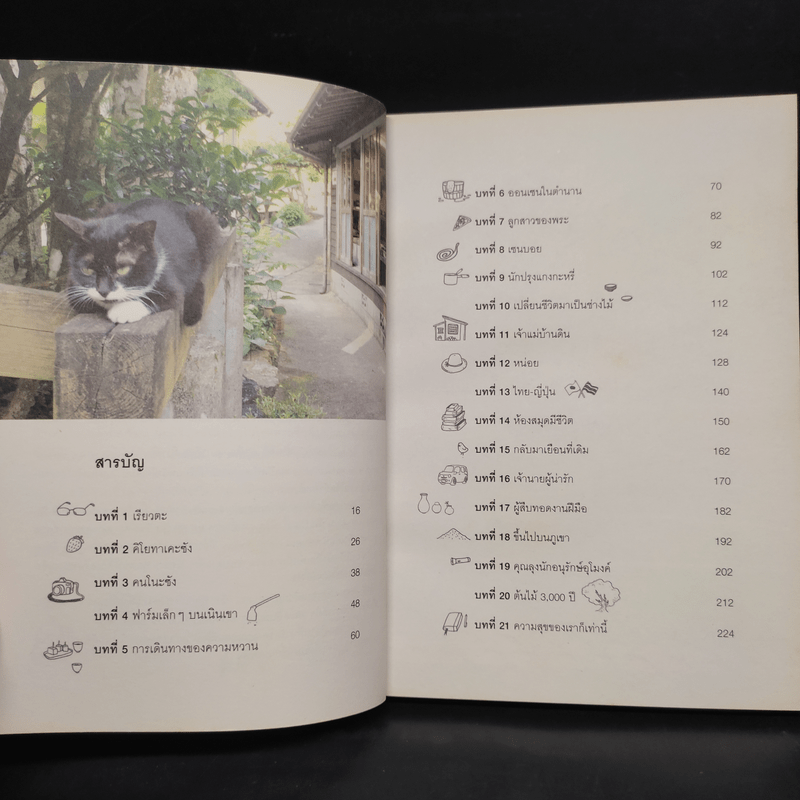 สารบัญ
บทที่ 1 เรียวตะ 16
บทที่ 2 คิโยทาเคะซัง 26
บทที่ 3 คนโนะซัง 38
บทที่ 4 ฟาร์มเล็ก ๆ บนเนินเขา 48
บทที่ 5 การเดินทางของความหวาน 60
บทที่ 6 ออนเซนในตำนาน 70
บทที่ 7 ลูกสาวของพระ 82
บทที่ 8 เซนบอย 92
บทที่ 9 นักปรุงแกงกะหรี่ 102
บทที่ 10 เปลี่ยนชีวิตมาเป็นช่างไม้ 112
บทที่ 11 เจ้าแม่บ้านดิน 124
บทที่ 12 หน่อย 128
บทที่ 13 ไทย-ญี่ปุ่น 140
บทที่ 14 ห้องสมุดมีชีวิต 150
บทที่ 15 กลับมาเยือนที่เดิม 162
บทที่ 16 เจ้านายผู้น่ารัก 170
บทที่ 17 ผู้สืบทอดงานฝีมือ 182
บทที่ 18 ขึ้นไปบนภูเขา 192
บทที่ 19 คุณลุงนักอนุรักษ์อุโมงค์ 202
บทที่ 20 ต้นไม้ 3,000 ปี 212
บทที่ 21 ความสุขของเราก็เท่านี้ 224